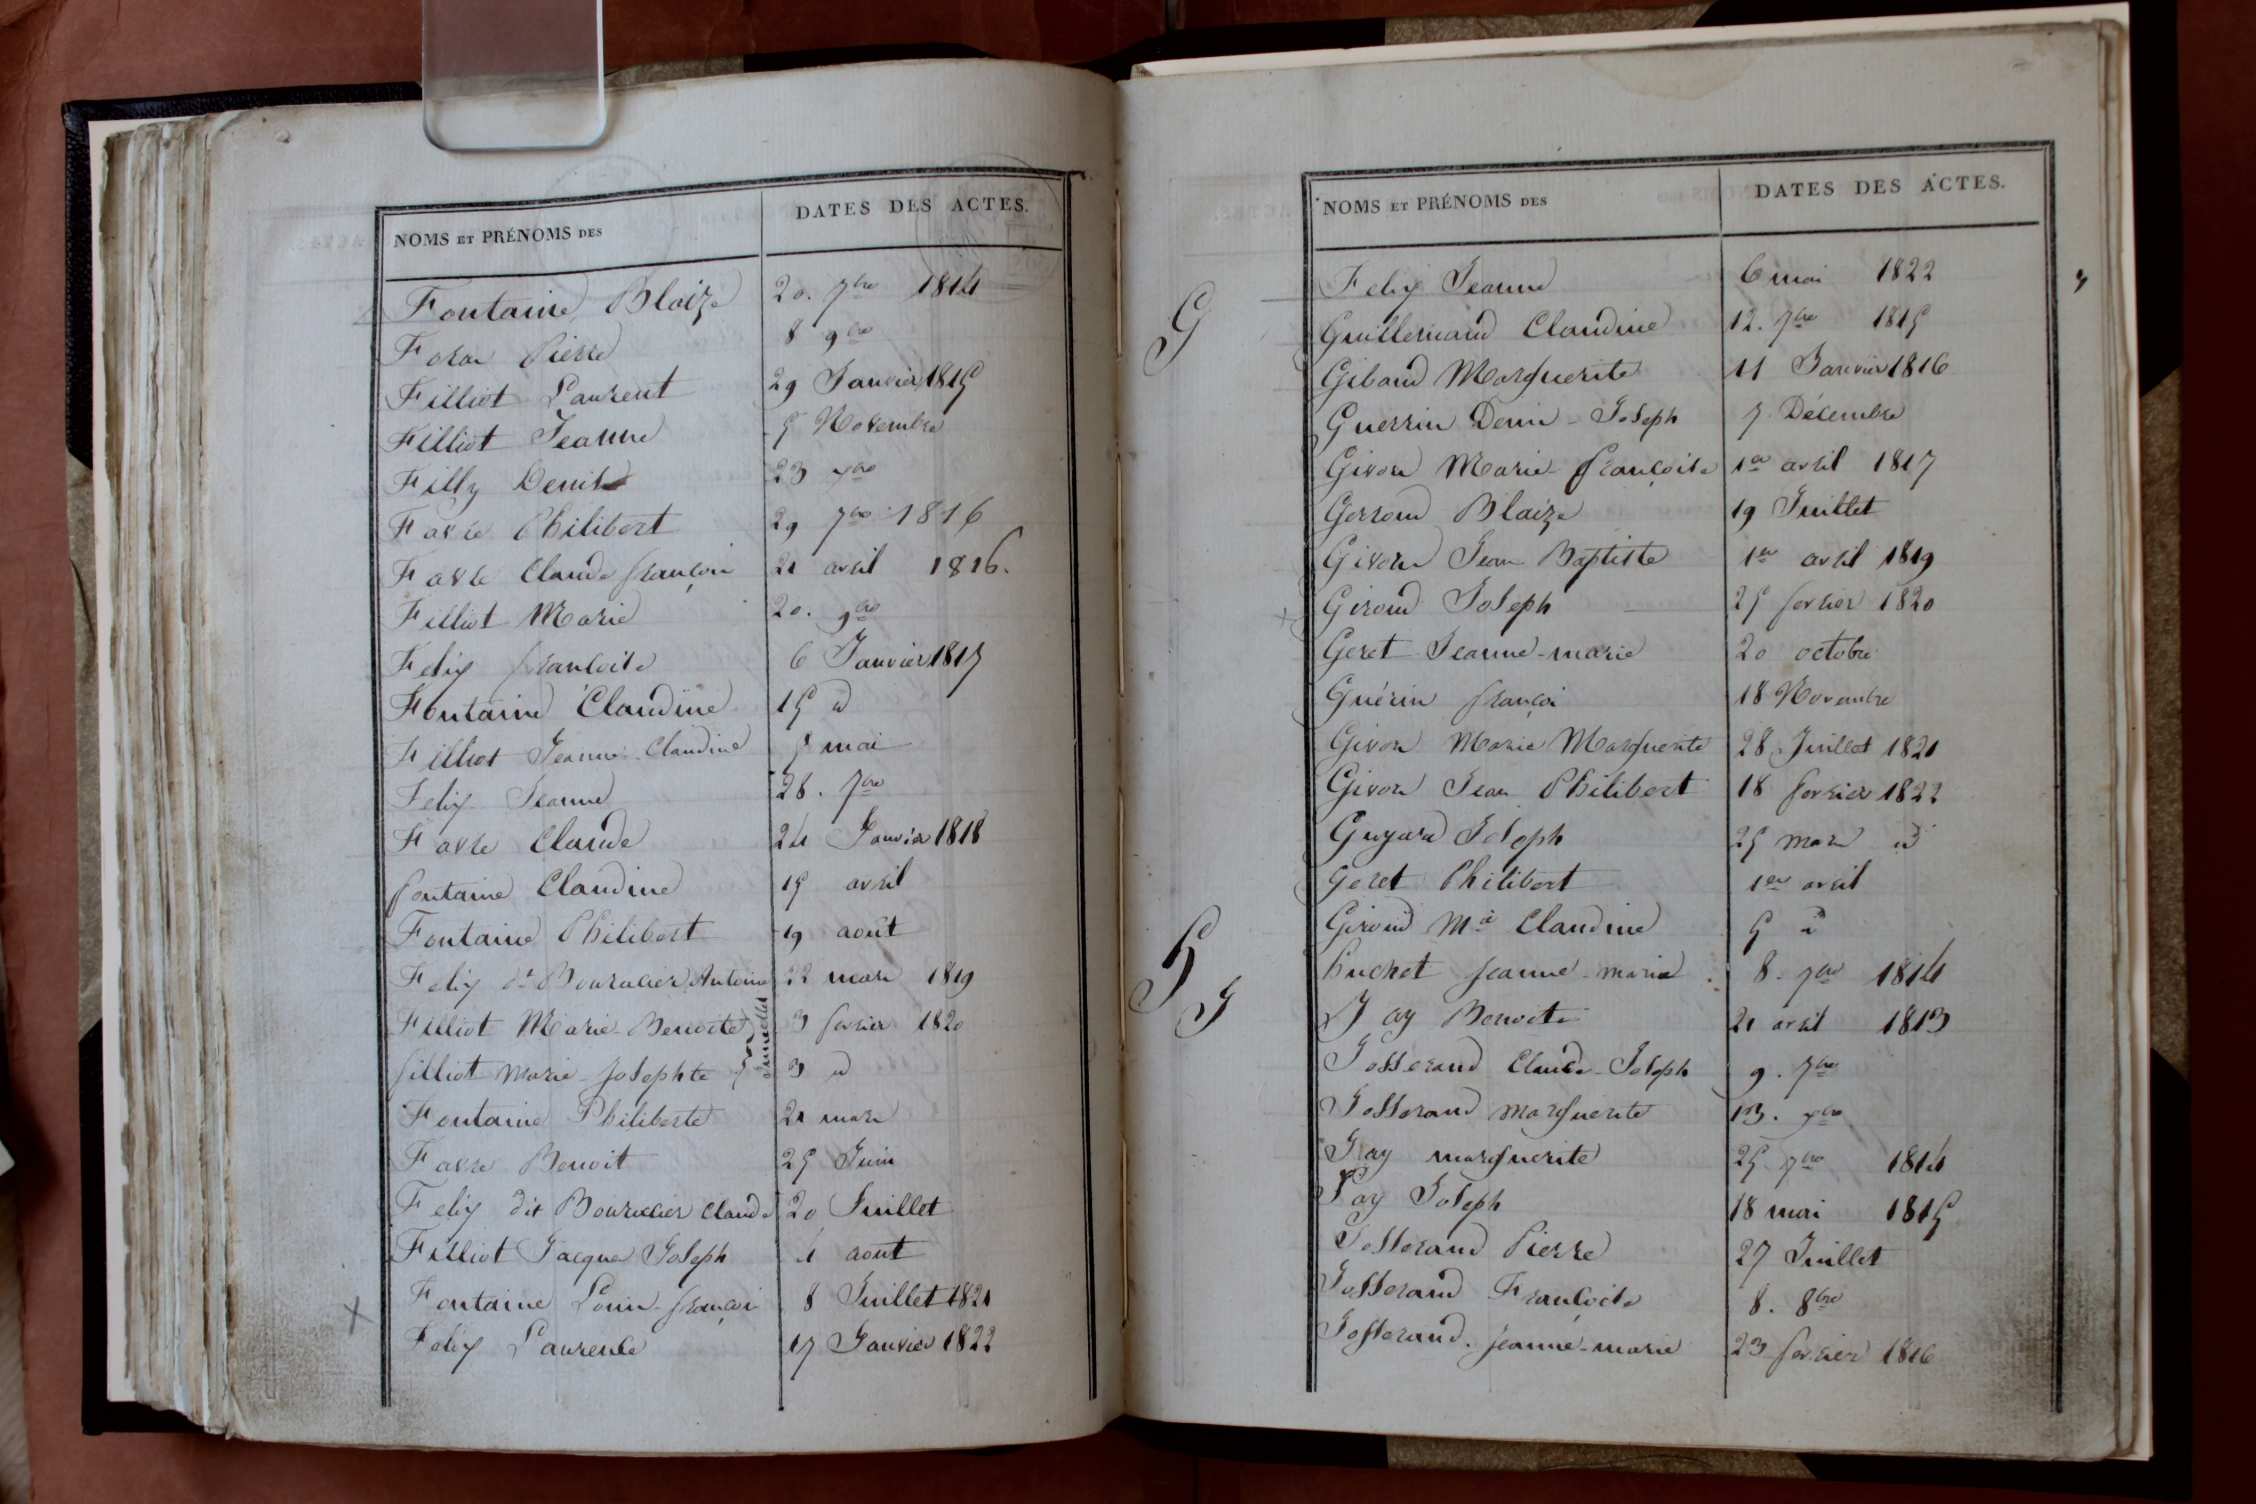 NOMS ET PRÉNOMS DES DATES DES ACTES.
Fontaine Blaize 20. 7bre 1814
Foras Pierre 8 9bre
Filliot Laurent 29 Janvier 1815
Filliot Jeanne 5 Novembre
Filly Denis 23 xbre
Favre Philibert 29 7bre 1816
Favre Claude françois 21 avril 1816.
Filliot Marie 20. 9bre
Felix françoise 6 Janvier 1817
Fontaine Claudine 15 id
Filliot Jeanne Claudine 5 mai
Felix Jeanne 28. 7bre
Favre Claude 24 Janvier 1818
fontaine Claudine 15 avril
Fontaine Philibert 19 aout
Felix dt Bourcelier Antoine 22 mars 1819
Filliot Marie Benoite 3 fevrier 1820
jumelles
filliot Marie Josephte 3 id
Fontaine Philiberte 21 mars
Favre Benoit 25 Juin
Felix dit Bourcelier Claude 20 Juillet
Filliot Jacque Joseph 4 aout
Fontaine Louis françois 8 Juillet 1821
Felix Laurence 17 Janvier 1822
NOMS ET PRÉNOMS DES DATES DES ACTES.
Felix Jeanne 6 mai 1822
G
Guillermand Claudine 12. 7bre 1815
Giband Marguerite 11 Janvier 1816
Guerrin Denis Joseph 7 Décembre
Givors Marie françoise 1er avril 1817
Gerroud Blaize 19 Juillet
Givors Jean Baptiste 1er avril 1819
Giroud Joseph 25 fevrier 1820
Geret Jeanne-marie 20 octobre
Guérin françois 18 Novembre
Givors Marie Marguerite 28 Juillet 1821
Givors Jean Philibert 18 fevrier 1822
Guyard Joseph 25 mars id
Geret Philibert 1er avril
Giroud Mie Claudine 5 id
H
huchet jeanne-marie 8. 7bre 1814
J
Jay Benoite 21 avril 1813
Josserand Claude-Joseph 9. 7bre
Josserand marguerite 13. xbre
Jay marguerite 25 7bre 1814
Jay Joseph 18 mai 1815
Josserand Pierre 27 Juillet
Josserand Françoise 8. 8bre
Josserand jeanne-marie 23 fevrier 1816